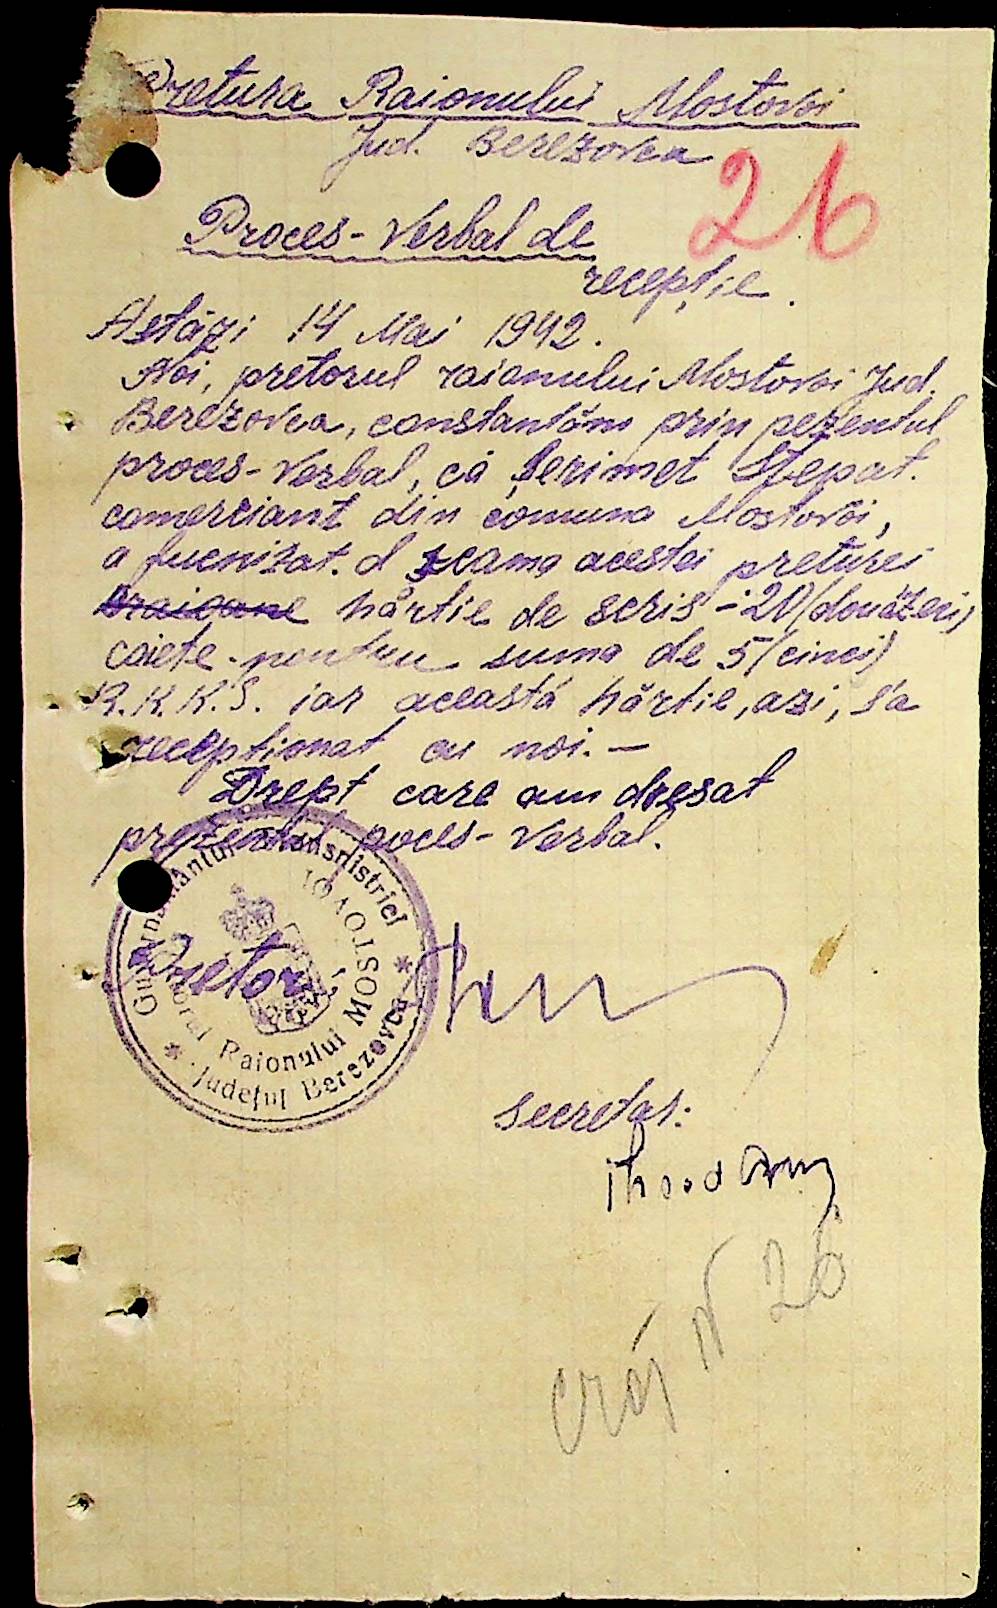 Pretura Raionului Mostovoi
Jud. Berezovca
26
Proces-Verbal de
recepție.
Astăzi 14 Mai 1942.
Noi, pretorul raionului Mostovoi Jud.
Berezovca, constantăm prin pezentul
proces-Verbal, că Șerimet Stepat.
comerciant din comuna Mostovoi,
a fucnizat. d scama acestei preturei
hârtie de scris - 20 (douăzeci)
caiete pentru suma de 5 (cinci)
R.K.K.S. iar această hărtie, azi, s'a
recepționat cu noi. —
Drept care am dresat
prezentul poces-Verbal.
Guvernământul Transnistriei
Pretorul Raionului MOSTOVOI
Județul Berezovca
Pretor,
Secretar:
N 26